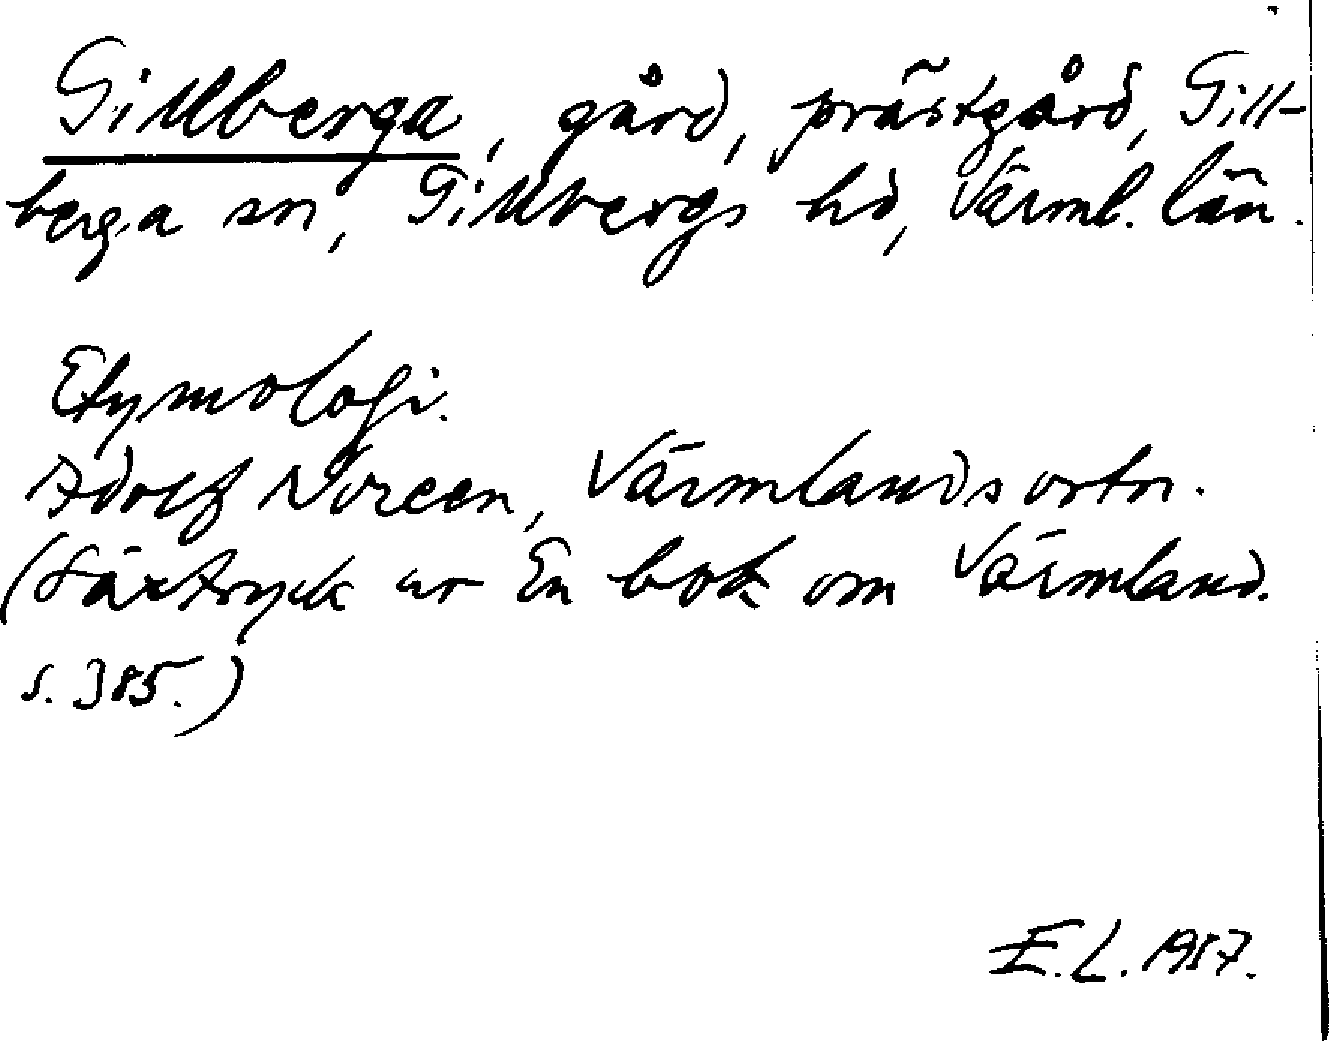 Gillberga, gård, prästgård, Gill-
berga sn, Gillbergs hd, Värml. län.
Etymologi.
Adolf Noreen, Värmlandsortn.
(Särtryck ur En bok om Värmland.
s. 385.)
E.L. 1957.